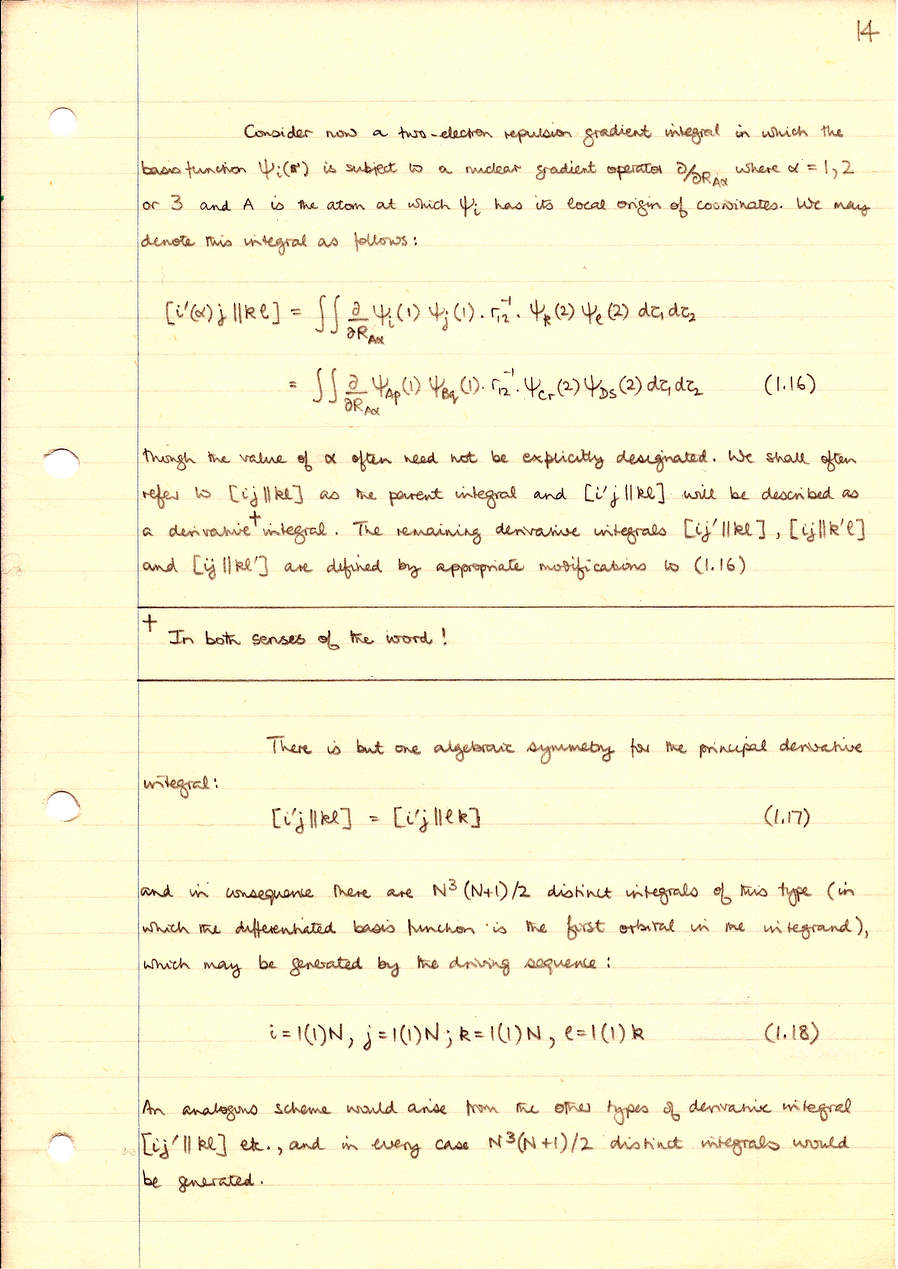 14
Consider now a two-electron repulsion gradient integral in which the
basis function ψᵢ(r) is subject to a nuclear gradient operator ∂/∂R_Aα where α = 1, 2
or 3 and A is the atom at which ψᵢ has its local origin of coordinates. We may
denote this integral as follows:
[i′(α)j||kℓ] = ∫∫ ∂/∂R_Aα ψᵢ(1) ψⱼ(1) . r₁₂⁻¹ . ψₖ(2) ψ_ℓ(2) dτ₁dτ₂
= ∫∫ ∂/∂R_Aα ψ_Ap(1) ψ_Bq(1) . r₁₂⁻¹ . ψ_Cr(2) ψ_Ds(2) dτ₁dτ₂ (1.16)
though the value of α often need not be explicitly designated. We shall often
refer to [ij||kl] as the parent integral and [i′j||kl] will be described as
a derivative† integral. The remaining derivative integrals [ij′||kl], [ij||k′ℓ]
and [ij||kℓ′] are defined by appropriate modifications to (1.16)
† In both senses of the word!
There is but one algebraic symmetry for the principal derivative
integral:
[i′j||kℓ] = [i′j||ℓk] (1.17)
and in consequence there are N³(N+1)/2 distinct integrals of this type (in
which the differentiated basis function is the first orbital in the integrand),
which may be generated by the driving sequence:
i=1(1)N, j=1(1)N; k=1(1)N, ℓ=1(1)k (1.18)
An analogous scheme would arise from the other types of derivative integral
[ij′||kl] etc., and in every case N³(N+1)/2 distinct integrals would
be generated.